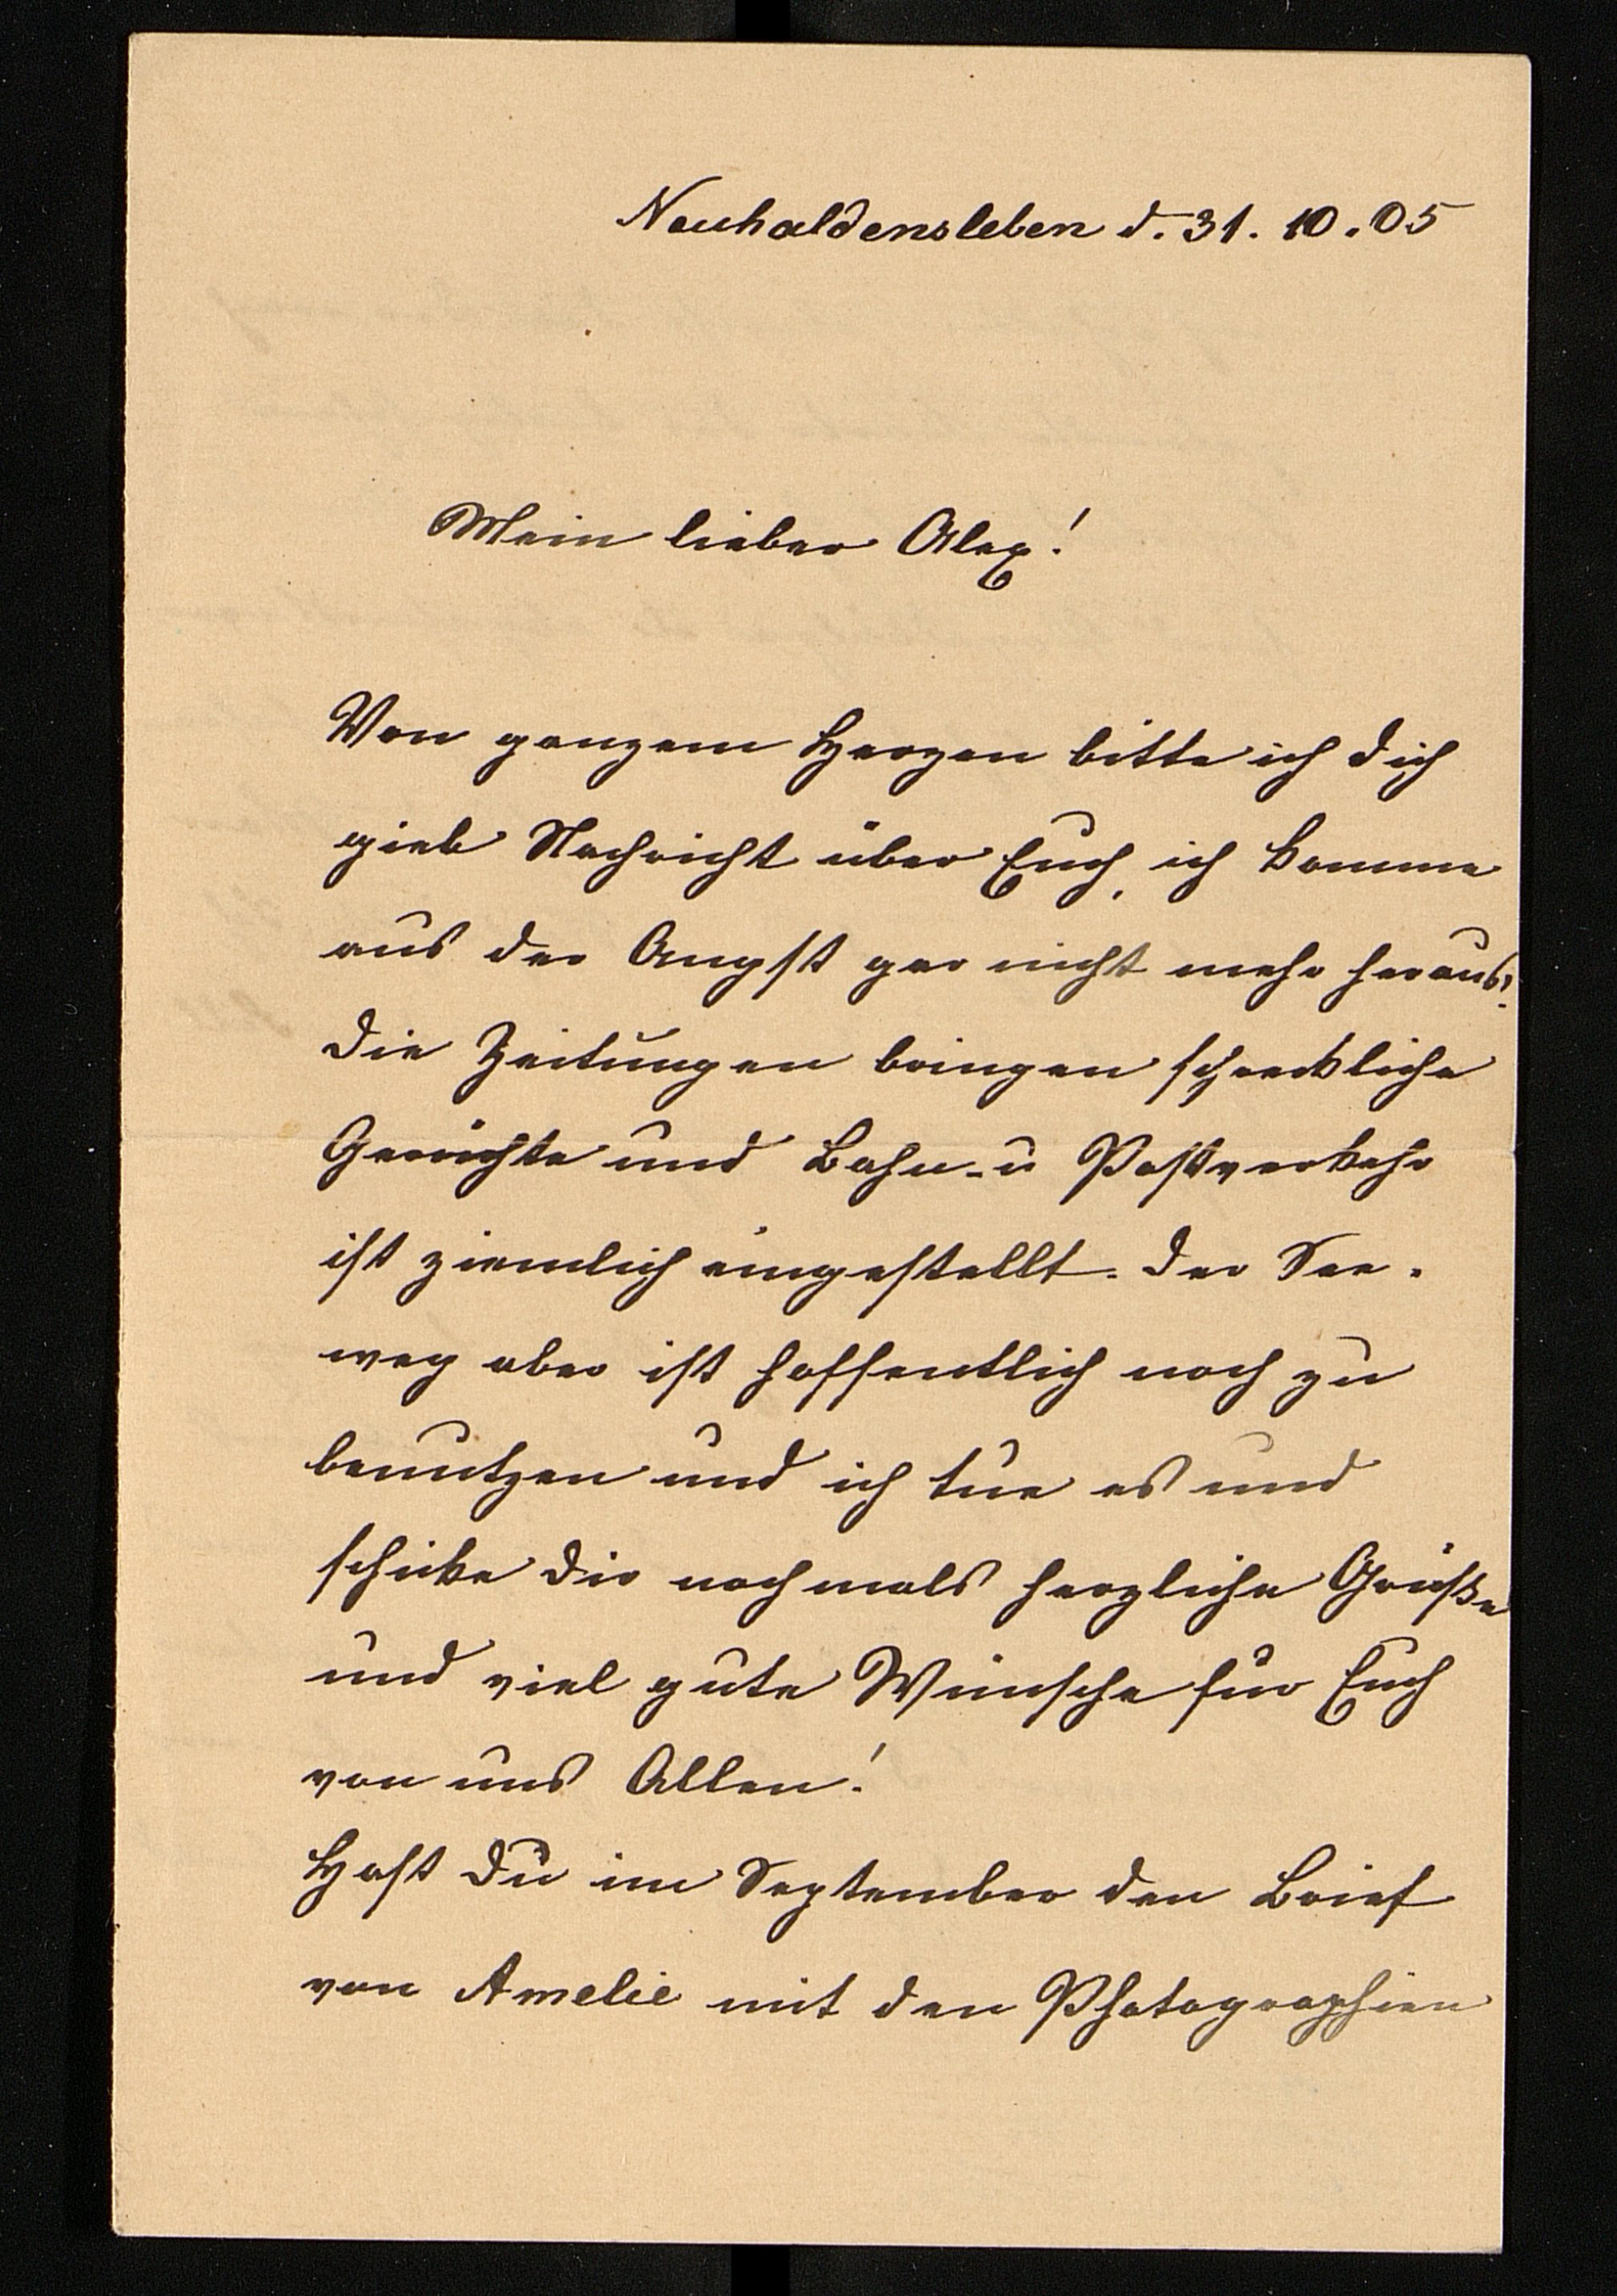 Neuhaldensleben d. 31. 10. 05
Mein lieber Alex!
Von ganzem Herzen bitte ich Dich
gieb Nachricht über Euch, ich komme
aus der Angst gar nicht mehr heraus!
Die Zeitungen bringen schreckliche
Gerüchte und Bahn- u Postverkehr
ist ziemlich eingestellt. Der See-
weg aber ist hoffentlich noch zu
benutzen und ich tue es und
schicke Dir nochmals herzliche Grüße
und viel gute Wünsche für Euch
von uns Allen!
Hast Du im September den Brief
von Amelie mit den Photographien